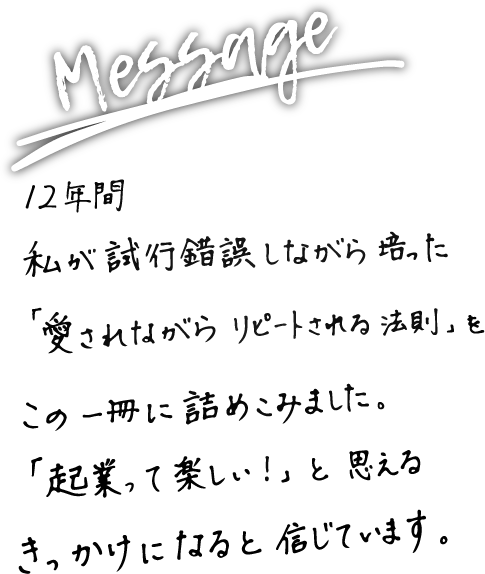 Message
12年間
私が試行錯誤しながら培った
「愛されながらリピートされる法則」を
この一冊に詰めこみました。
「起業って楽しい！」と思える
きっかけになると信じています。